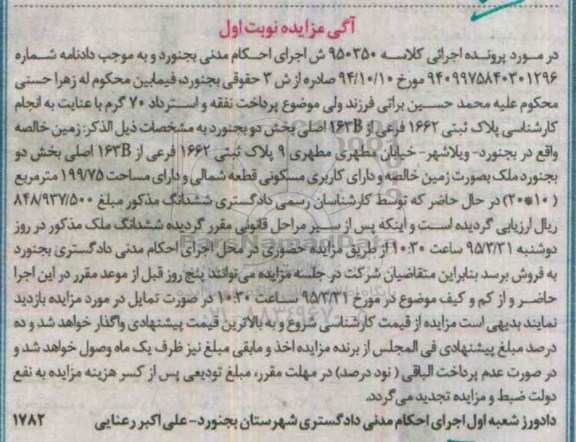 آگهی مزایده نوبت اول
در مورد پرونده اجرائی کلاسه ۹۵۰۳۵۰ ش اجرای احکام مدنی بجنورد و به موجب دادنامه شماره
۹۴۰۹۹۷۵۸۴۰۳۰۱۲۹۶ مورخ ۹۴/۱۰/۱۰ صادره از ش ۳ حقوقی بجنورد، فیمابین محکوم له زهرا حستی
محکوم علیه محمد حسین براتی فرزند ولی موضوع پرداخت نفقه و استرداد ۷۰ گرم با عنایت به انجام
کارشناسی پلاک ثبتی ۱۶۶۲ فرعی از ۱۶۳B اصلی بخش دو بجنورد به مشخصات ذیل الذکر: زمین خالصه
واقع در بجنورد- ویلاشهر- خیابان مطهری مطهری ۹ پلاک ثبتی ۱۶۶۲ فرعی از ۱۶۳B اصلی بخش دو
بجنورد ملک بصورت زمین خالصه و دارای کاربری مسکونی قطعه شمالی و دارای مساحت ۱۹۹/۷۵ مترمربع
(۱۰*۲۰) در حال حاضر که توسط کارشناسان رسمی دادگستری ششدانگ مذکور مبلغ ۸۴۸/۹۳۷/۵۰۰
ریال ارزیابی گردیده است و اینکه پس از سیر مراحل قانونی مقرر گردیده ششدانگ ملک مذکور در روز
دوشنبه ۹۵/۳/۳۱ ساعت ۱۰:۳۰ از طریق مزایده حضوری در محل اجرای احکام مدنی دادگستری بجنورد
به فروش برسد بنابراین متقاضیان شرکت در جلسه مزایده می توانند پنج روز قبل از موعد مقرر در این اجرا
حاضر و از کم و کیف موضوع در مورخ ۹۵/۳/۳۱ ساعت ۱۰:۳۰ در صورت تمایل در مورد مزایده بازدید
نمایند بدیهی است مزایده از قیمت کارشناسی شروع و به بالاترین قیمت پیشنهادی واگذار خواهد شد و ده
درصد مبلغ پیشنهادی فی المجلس از برنده مزایده اخذ و مابقی مبلغ نیز ظرف یک ماه وصول خواهد شد و
در صورت عدم پرداخت الباقی (نود درصد) در مهلت مقرر، مبلغ تودیعی پس از کسر هزینه مزایده به نفع
دولت ضبط و مزایده تجدید می گردد.
دادورز شعبه اول اجرای احکام مدنی دادگستری شهرستان بجنورد- علی اکبر رعنایی ۱۷۸۲